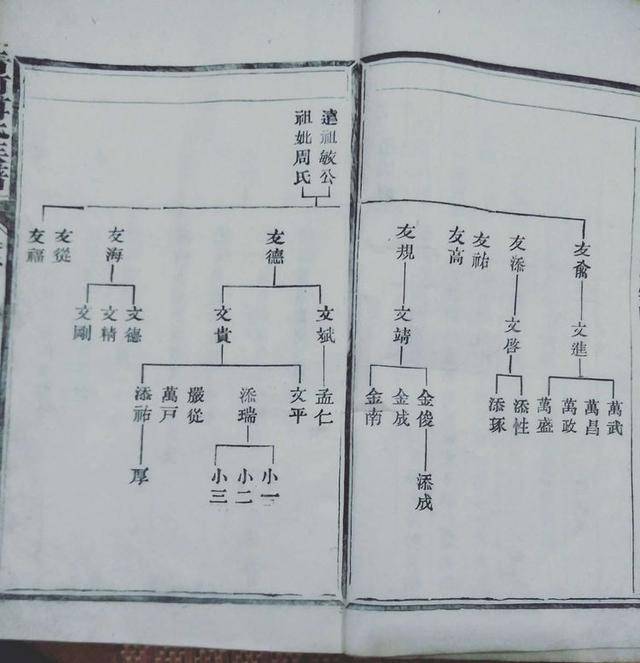 遠祖敏公
祖妣周氏
友俞
友添
友祐
友高
友規
友德
友海
友從
友福
文進
文啓
文靖
文斌
文貴
文德
文精
文剛
萬武
萬昌
萬政
萬盛
添性
添琢
金俊
金成
金南
孟仁
文平
添瑞
嚴從
萬戸
添祐
添成
小一
小二
小三
厚